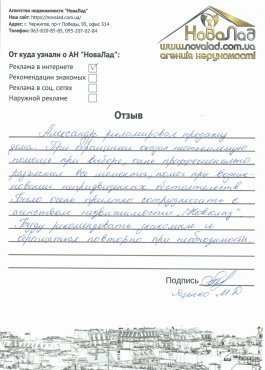 Агентство недвижимости "НоваЛад"
Наш сайт: https://novalad.com.ua/
Адрес: г. Чернигов, пр-т Победы, 95, офис 314.
Телефон: 063-820-85-85, 095-207-02-84
НоваЛад
www.novalad.com.ua
агенція нерухомості
От куда узнали о АН "НоваЛад"
Реклама в интернете
Рекомендации знакомых
Реклама в соц. сетях
Наружной рекламе
Отзыв
Александр рекламировал продажу
дома. При обращении оказал настоящую
помощь при выборе, очень профессионально
разъяснил все моменты, помог при возник-
новении непредвиденных обстоятельств.
Было очень приятно сотрудничать с
агентством недвижимости "Новолад".
Буду рекомендовать знакомым и
обращаться повторно при необходимости.
Подпись